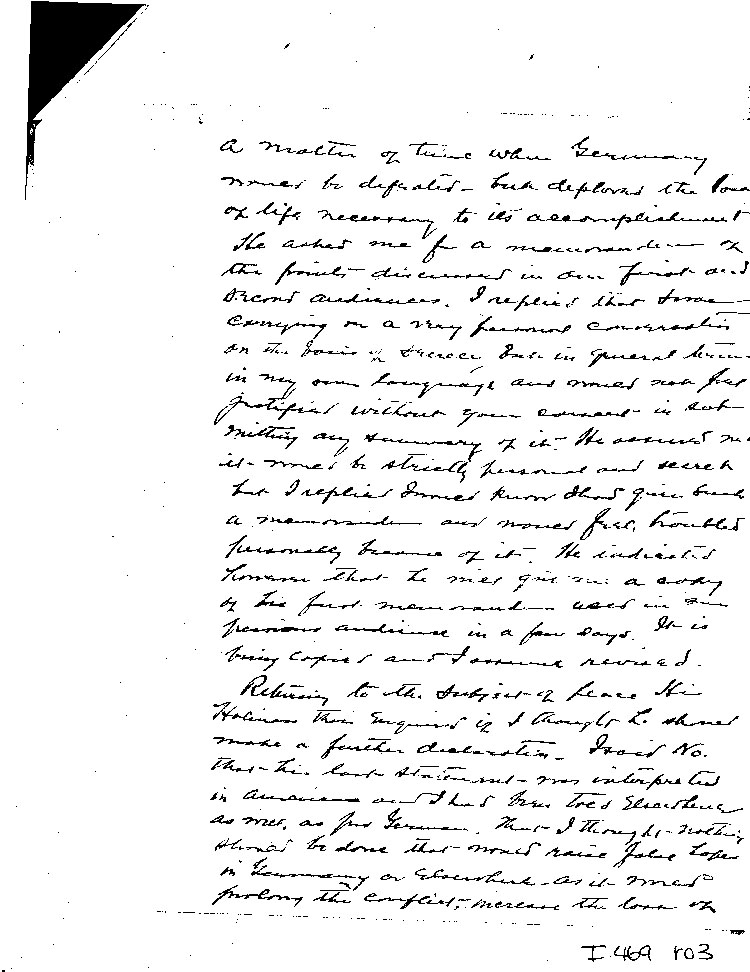 a matter of time when Germany
would be defeated - but deplored the loss
of life necessary to its accomplishment
He asked me for a memorandum of
the points discussed in our first and
second audiences. I replied that I was
carrying on a very personal conversation
on the basis of secrecy, but in general terms
in my own language and would not feel
justified without your consent in sub
mitting any summary of it. He assured me
it would be strictly personal and secret
but I replied I would know I had given such
a memorandum and would feel troubled
personally because of it. He indicated
however that he will give me a copy
of his first memorandum used in our
previous audience in a few days. It is
being copied and I assume revised.
Returning to the subject of peace His
Holiness then enquired if I thought he should
make a further declaration - I said No.
that his last statement was interpreted
in America and I had been told elsewhere
as well, as pro German. That I thought nothing
should be done that would raise false hopes
in Germany or elsewhere - as it would
prolong the conflict, increase the loss of
I.469 r03